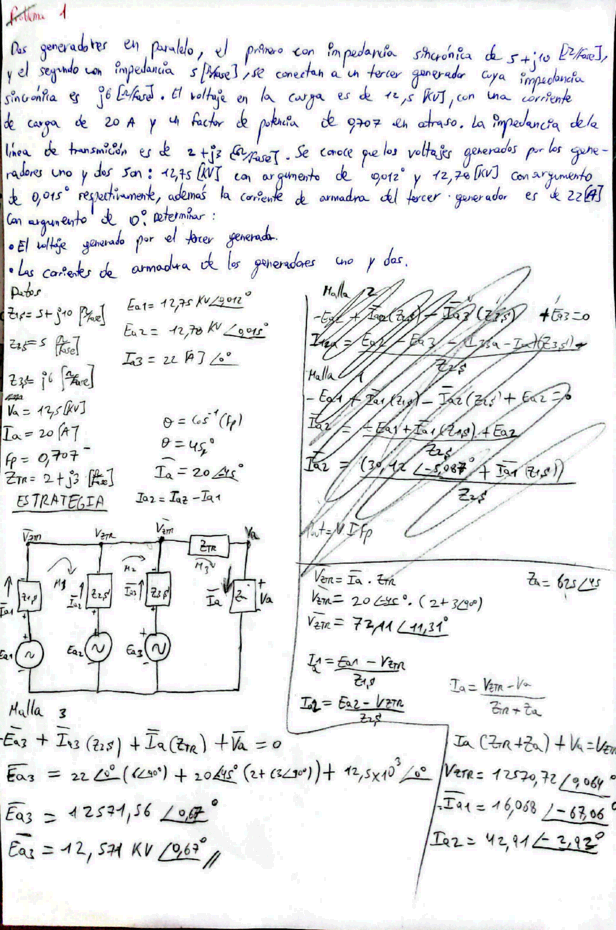 Problema 1
Dos generadores en paralelo, el primero con impedancia sincrónica de 5+j10 [Ω/Fase],
y el segundo con impedancia 5 [Ω/Fase], se conectan a un tercer generador cuya impedancia
sincrónica es j6 [Ω/Fase]. El voltaje en la carga es de 12,5 [KV], con una corriente
de carga de 20 A y un factor de potencia de 0,707 en atraso. La impedancia de la
línea de transmición es de 2+j3 [Ω/Fase]. Se conoce que los voltajes generados por los gene-
radores uno y dos son: 12,75 [KV] con argumento de 0,012° y 12,78 [KV] con argumento
de 0,015° respectivamente, además la corriente de armadura del tercer generador es de 22 [A]
con argumento de 0°. Determinar:
• El voltaje generado por el tercer generador.
• Las corrientes de armadura de los generadores uno y dos.
Datos
Z1,s = 5+j10 [Ω/Fase]
Z2,s = 5 [Ω/Fase]
Z3,s = j6 [Ω/Fase]
Va = 12,5 [KV]
Ia = 20 [A]
Fp = 0,707
ZTR = 2+j3 [Ω/Fase]
Ea1 = 12,75 KV ∠0,012°
Ea2 = 12,78 KV ∠0,015°
Ia3 = 22 [A] ∠0°
θ = Cos⁻¹(Fp)
θ = 45°
Ia = 20 ∠-45°
Ia2 = Ia2 - Ia1
ESTRATEGIA
VZTR
VZTR
ZTR
Va
M1
M2
M3
Ia1
Z1,s
Ia2
Z2,s
Ia3
Z3,s
Ia
Z
+
Va
-
Ea1
Ea2
Ea3
Malla 3
-Ea3 + Ia3 (Z3,s) + Ia (ZTR) + Va = 0
Ea3 = 22 ∠0° (6∠90°) + 20∠-45° (2+(3∠90°)) + 12,5x10³ ∠0°
Ea3 = 12571,56 ∠0,67°
Ea3 = 12,571 KV ∠0,67° //
Malla 2
-Ea2 + Ia2 (Z2,s) - Ia3 (Z3,s) + Ea3 = 0
Z2,s
Malla 1
-Ea1 + Ia1 (Z1,s) - Ia2 (Z2,s) + Ea2 = 0
Ia2 = -Ea1 + Ia1 (Z1,s) + Ea2
Z2,s
Ia2 = (30,12 ∠-5,087° + Ia1 (Z1,s))
Z2,s
VZTR = Ia . ZTR
VZTR = 20 ∠-45° . (2+3∠90°)
VZTR = 72,11 ∠11,31°
Za = 625 ∠45
Ia1 = Ea1 - VZTR
Z1,s
Ia2 = Ea2 - VZTR
Z2,s
Ia = VZTR - Va
ZTR + Za
Ia (ZTR+Za) + Va = VZTR
VZTR = 12570,72 ∠0,064°
Ia1 = 16,068 ∠-67,06
Ia2 = 42,91 ∠-2,92°